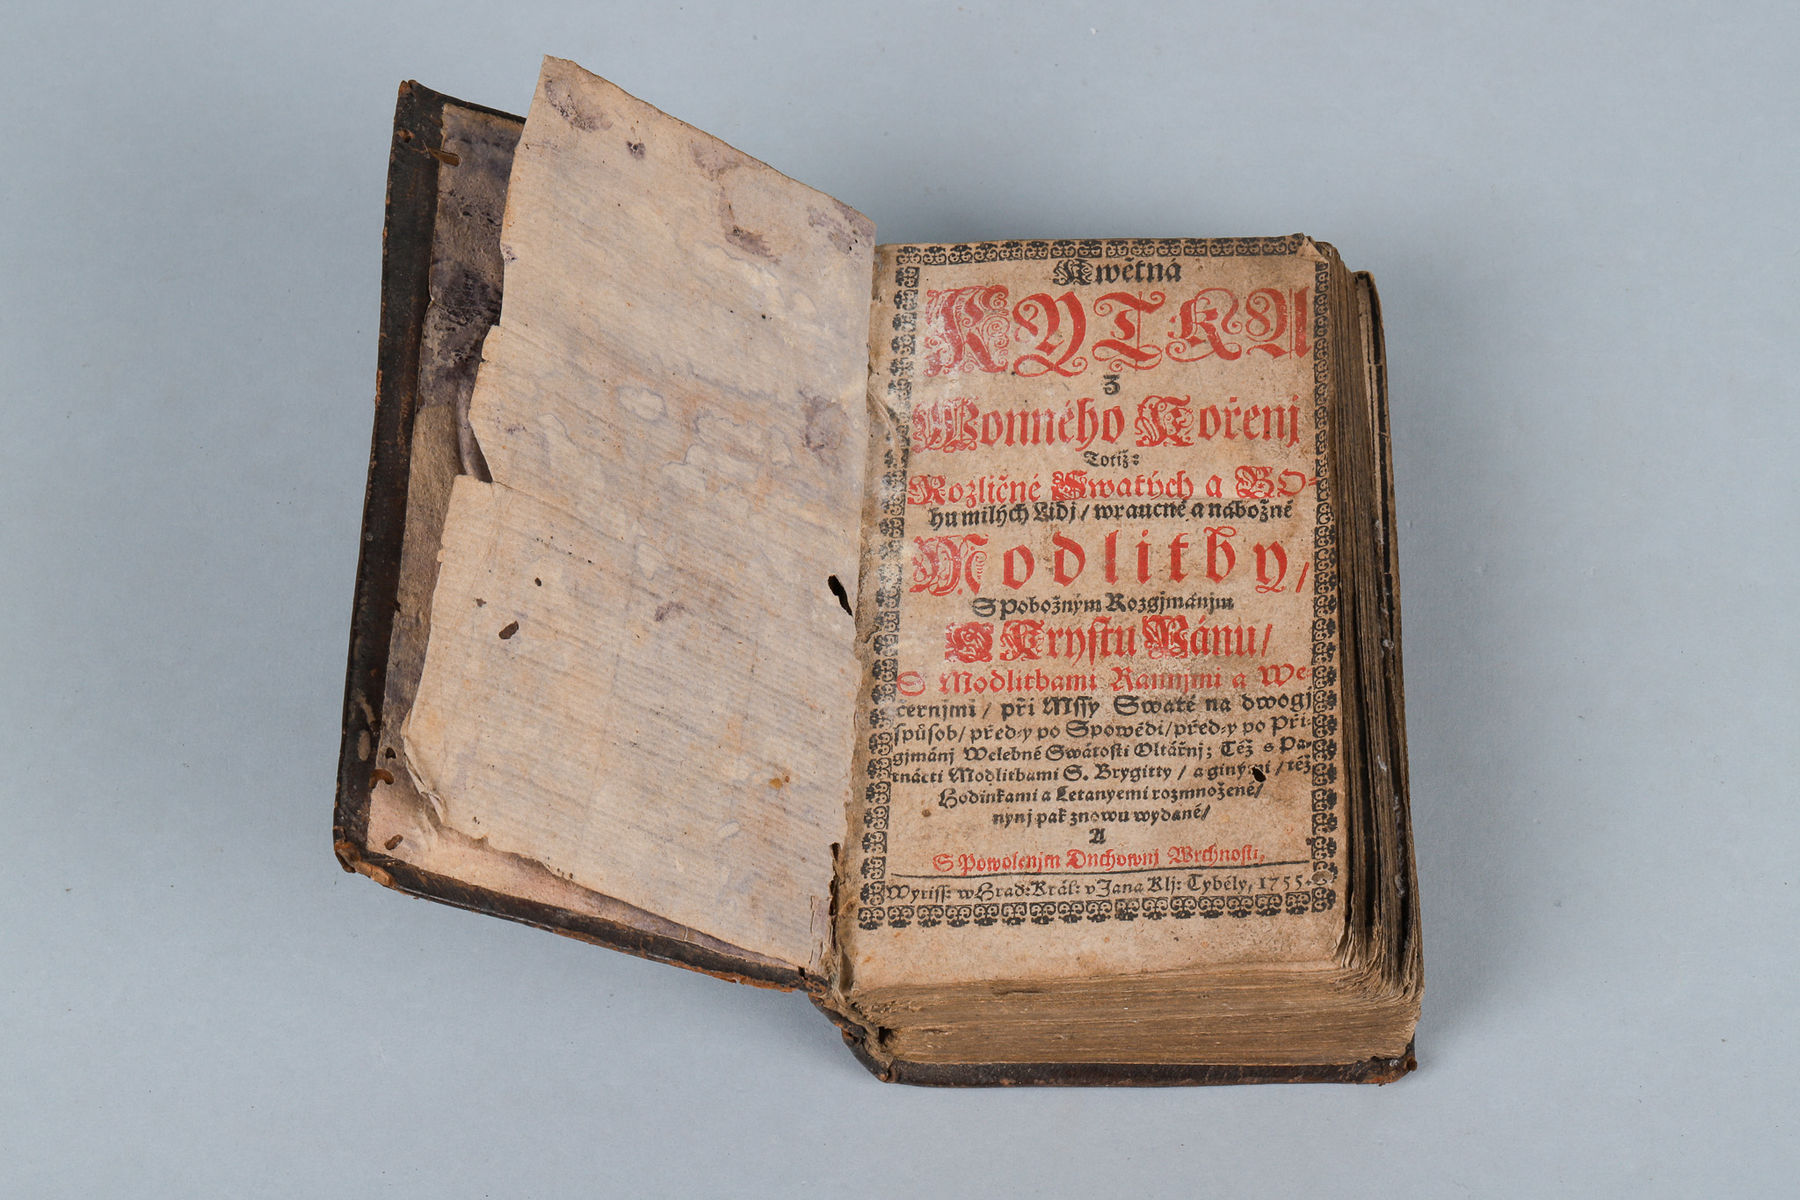 Kwětná
KYTKA
Z
Wonného Kořenj
Totiž:
Rozličné Swatých a BO-
hu milých Lidj / wraucné a nábožné
Modlitby,
S pobožným Rozgjmánjm
O Krystu Pánu/
S Modlitbami Rannjmi a We-
černjmi / při Mssy Swaté na dwogj
způsob/ před-y po Spowědi/ před-y po Při-
gjmánj Welebné Swátosti Oltářnj; Též s Pa-
tnácti Modlitbami S. Brygitty / a ginými / též
Hodinkami a Letanyemi rozmnožené/
nynj pak znowu wydané/
A
S Powolenjm Duchownj Wrchnosti,
Wytiss: w Hrad: Král: v Jana Klj: Tybély, 1755.